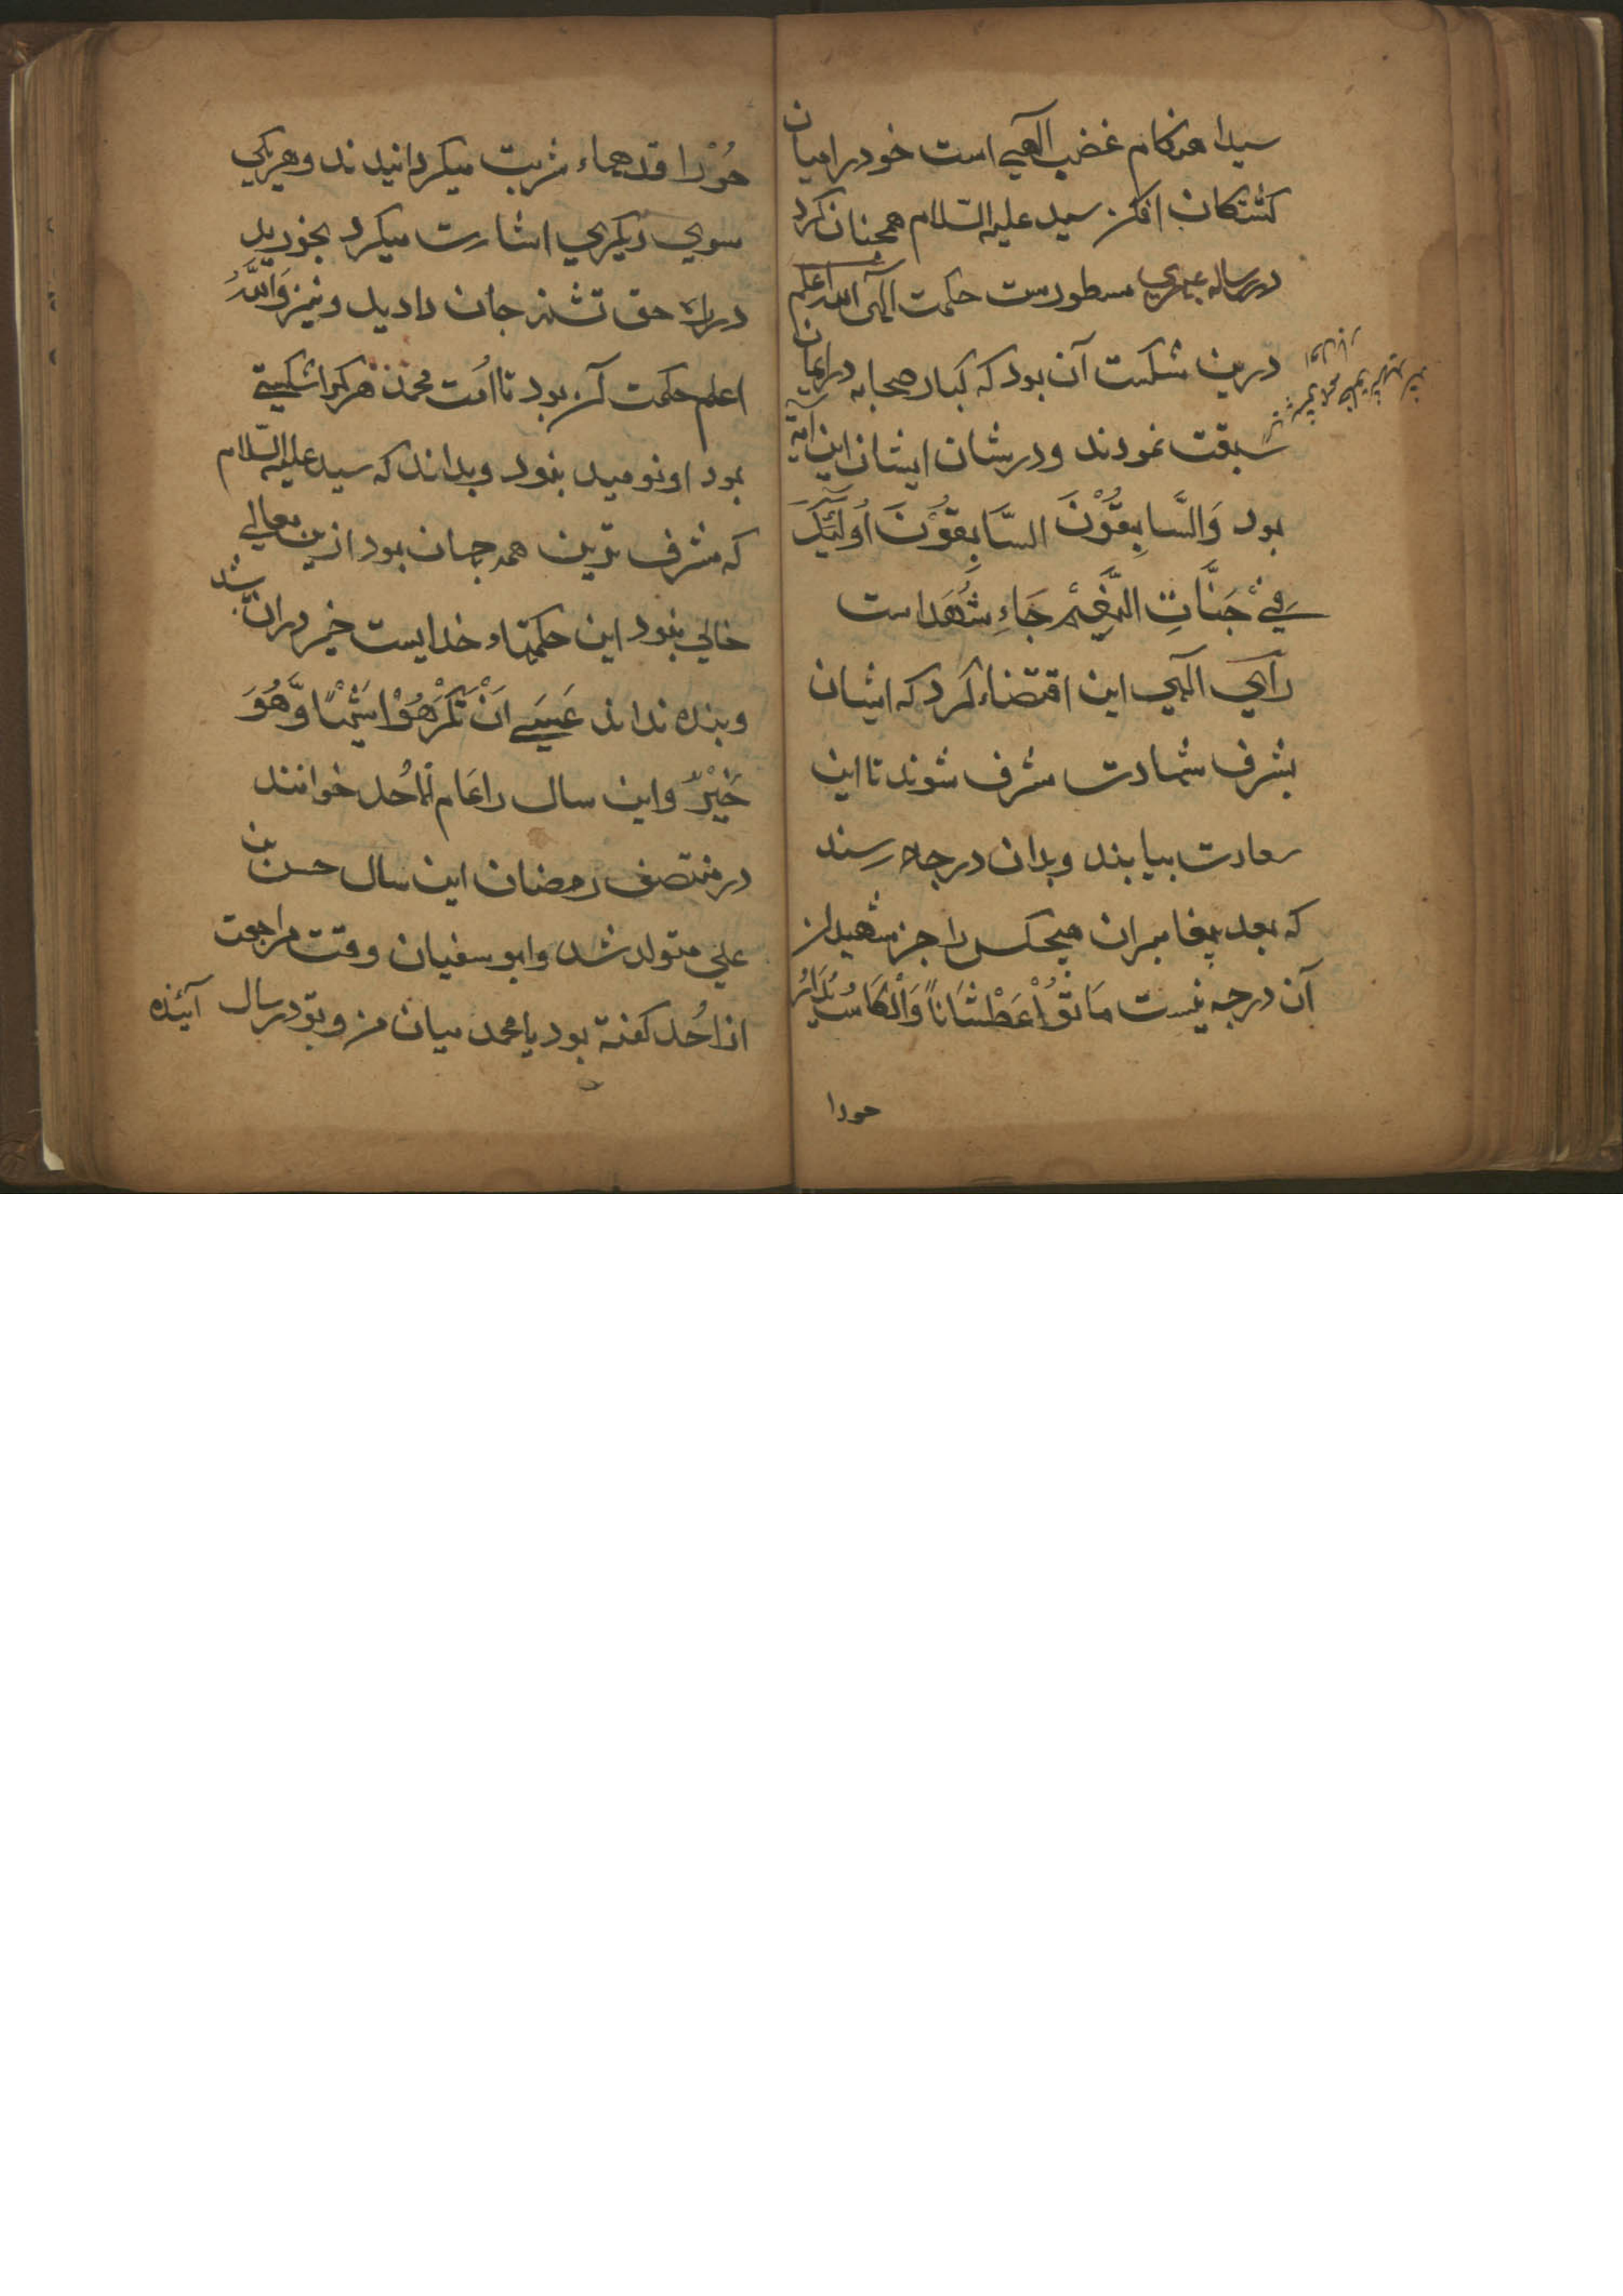 سیدا هنکام غضب الهی است خود را میان
کشتکان افکن سید علیه السلام همچنان کرد
در رساله مسطورست حکمت الهی الله اعلم
درین شکست آن بود که کبار صحابه در ایمان
سبقت نمودند و در شان ایشان این آیة
بود وَالسَّابِقُوْنَ السَّابِقُوْنَ اُولٰئِكَ
فِیْ جَنَّاتِ النَّعِیْمِ جَاءِ شُهَدا است
رای الهی این اقتضاء کرد که ایشان
بشرف شهادت مشرف شوند تا این
سعادت بیابند و بدان درجه رسند
که بعد پیغامبران هیچکس را جز شهیدان
آن درجه نیست مَاتُوْا عَطْشَاناً وَالْكَاسُ تُدَارُ
حورا
حُوْرا قدحهاء شربت میکردانیدند و هریکی
سوی دیکری اشارت میکرد بخورید
در راه حق تشنه جان دادید و نیز وَاللهُ
اعلم حکمت آن بود تا امت محمد هرکرا شکستی
بود او نومید بنود و بداند که سید علیه السلام
که مشرف ترین همه جهان بود ازین معانی
خالی بنود این حکمتهاء خدایست خیر دران باشد
و بنده نداند عَسٰی اَنْ تَكْرَهُوْا شَیْئًا وَّهُوَ
خَیْرٌ و این سال را عَام اُحُد خوانند
در منتصف رمضان این سال حسن بن
علی متولد شد و ابو سفیان وقت مراجعت
از اُحُد کفته بود یا محمد میان من و تو در سال آئنده